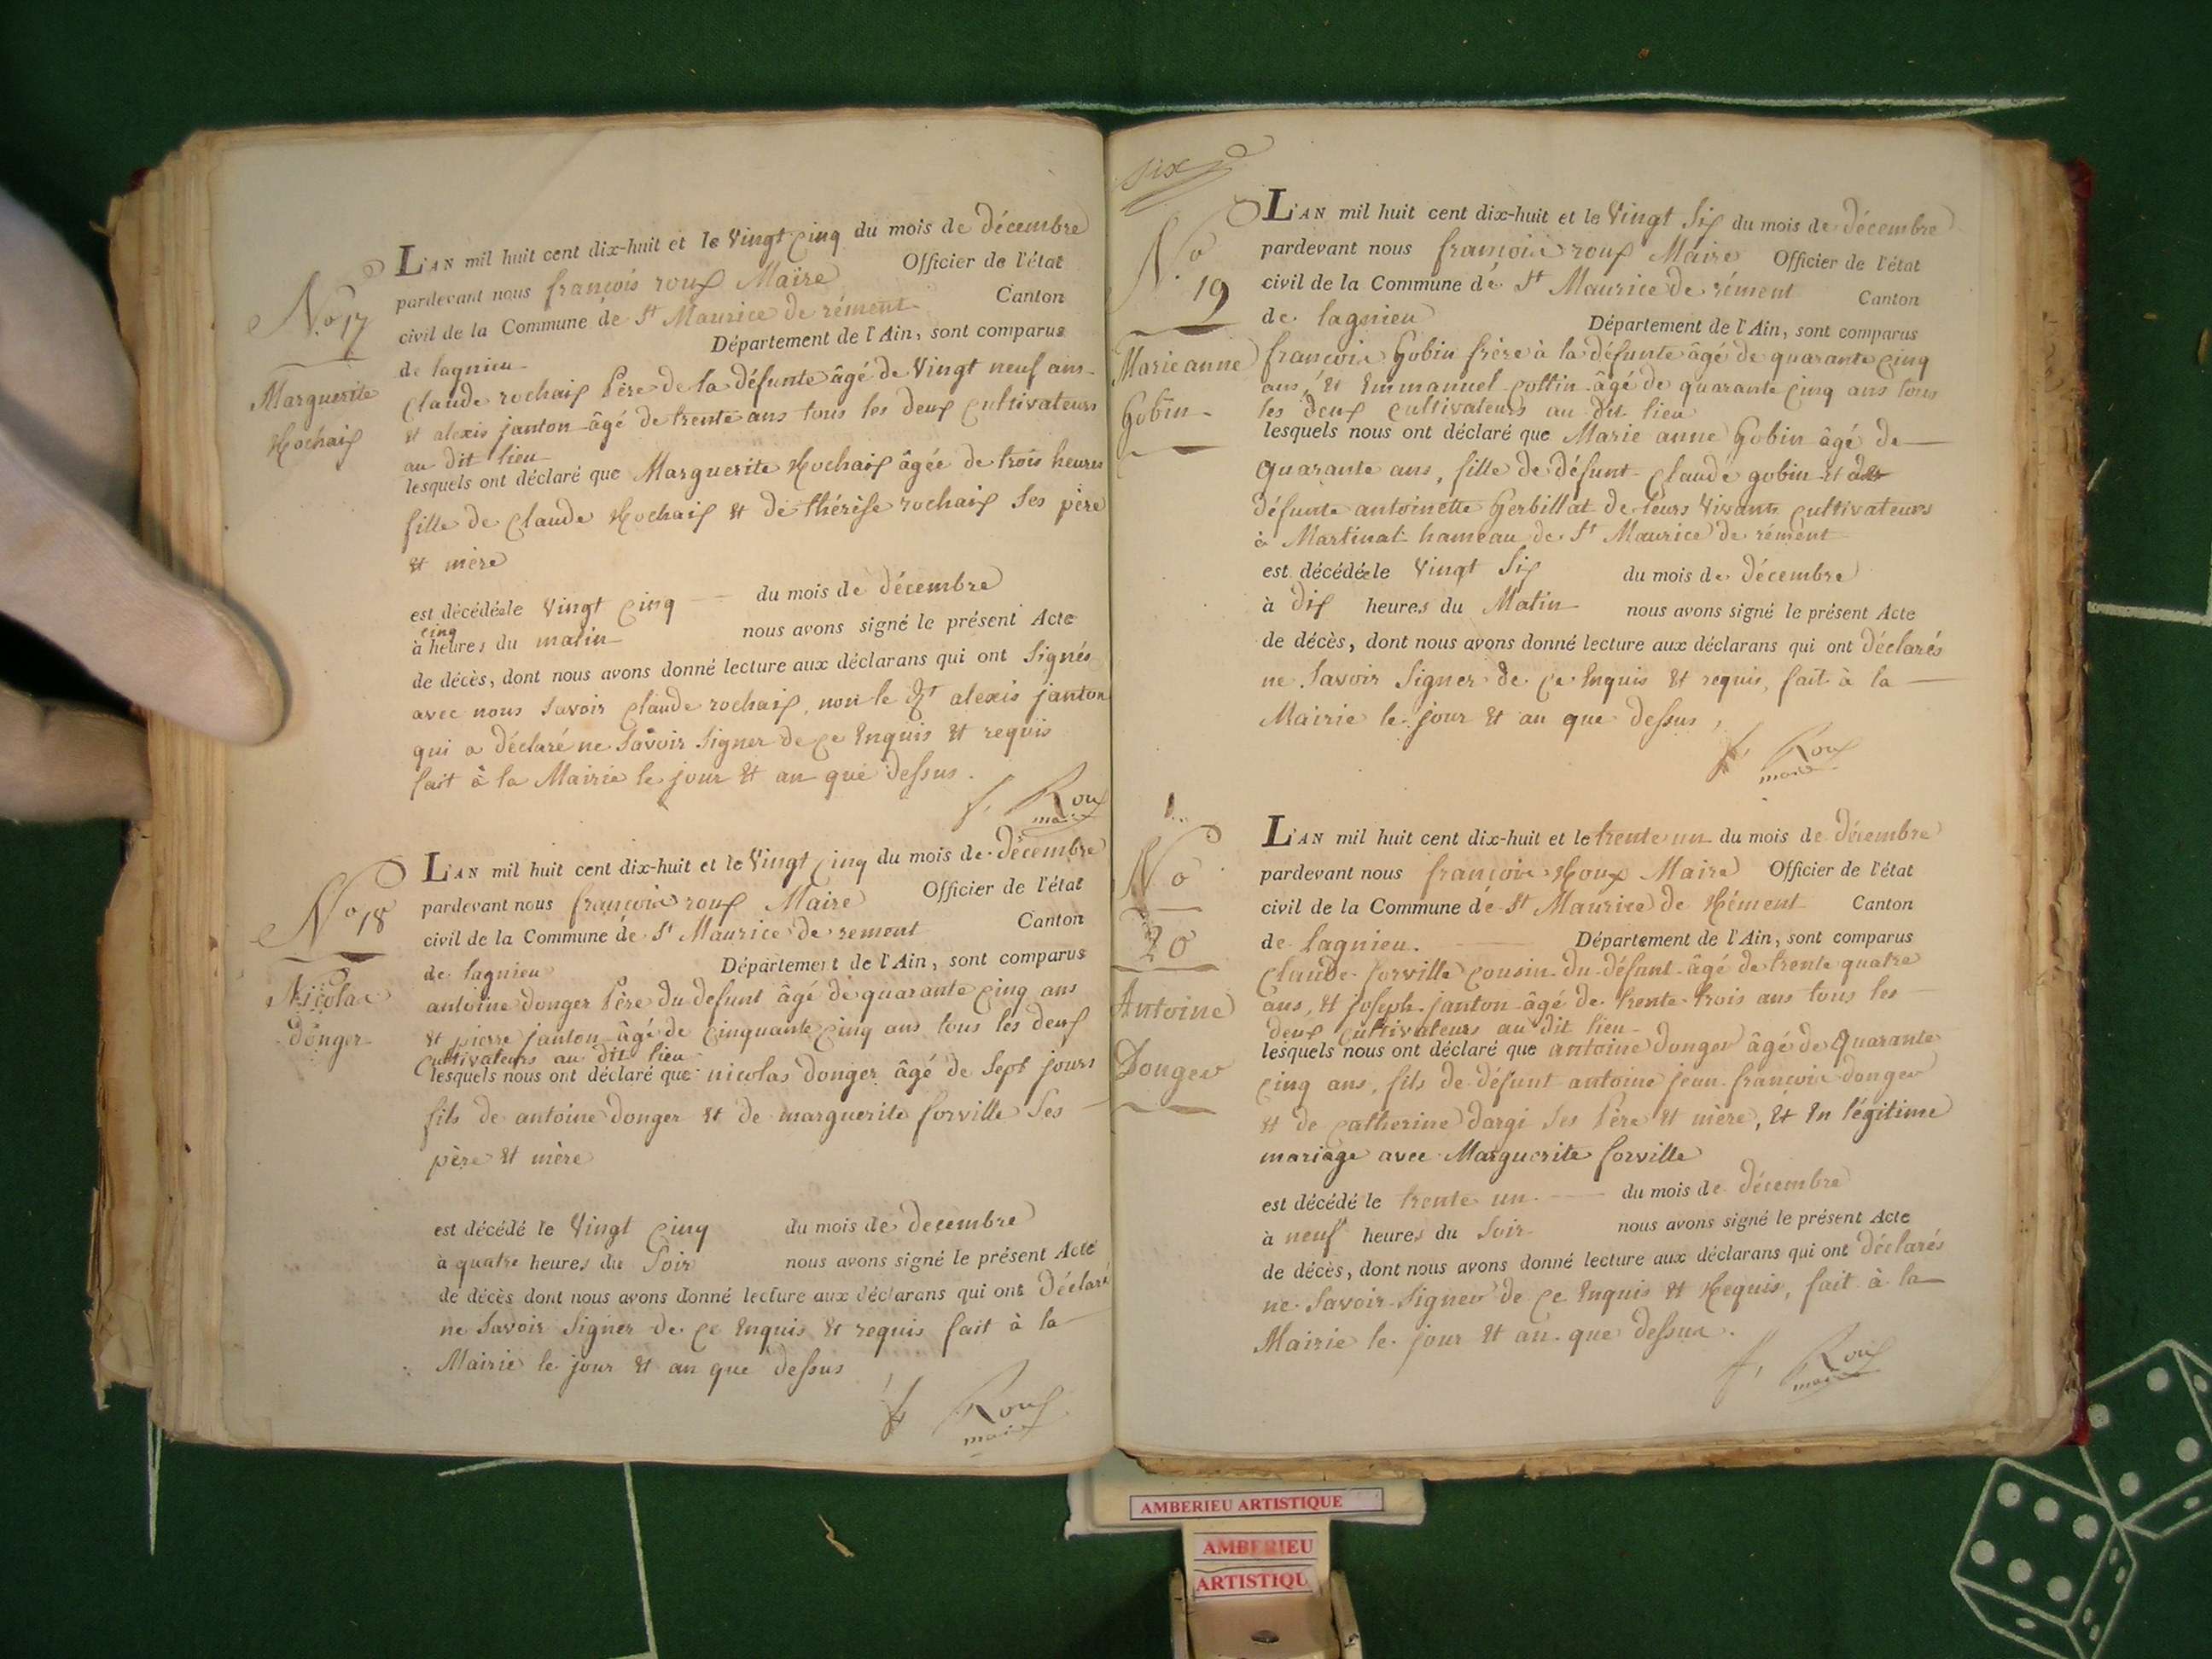 N.o 17
Marguerite
Rochaix
L'AN mil huit cent dix-huit et le Vingt cinq du mois de décembre
pardevant nous françois roux Maire Officier de l'état
civil de la Commune de St Maurice de rément Canton
de lagnieu Département de l'Ain, sont comparus
Claude rochaix Père de la défunte âgé de Vingt neuf ans
et alexis janton âgé de trente ans tous les deux cultivateurs
au dit lieu
lesquels ont déclaré que Marguerite Rochaix âgée de trois heures
fille de Claude Rochaix et de thérèse rochaix Ses père
et mère
est décédée le Vingt cinq du mois de décembre
à cinq heures du matin nous avons signé le présent Acte
de décès, dont nous avons donné lecture aux déclarans qui ont Signés
avec nous Savoir Claude rochaix, non le dt alexis janton
qui a déclaré ne Savoir Signer de ce Enquis et requis
fait à la Mairie le jour et an que dessus.
f. Roux
maire
No 18
Nicolas
donger
L'AN mil huit cent dix-huit et le Vingt cinq du mois de décembre
pardevant nous françois roux Maire Officier de l'état
civil de la Commune de St Maurice de rement Canton
de lagnieu Département de l'Ain, sont comparus
antoine donger Père du defunt âgé de quarante cinq ans
et pierre janton âgé de Cinquante cinq ans tous les deux
Cultivateurs au dit lieu
lesquels nous ont déclaré que nicolas donger âgé de Sept jours
fils de antoine donger et de marguerite forville Ses
père et mère
est décédé le Vingt cinq du mois de decembre
à quatre heures du Soir nous avons signé le présent Acte
de décès dont nous avons donné lecture aux déclarans qui ont déclaré
ne Savoir Signer de ce Enquis et requis fait à la
Mairie le jour et an que dessus
f Roux
maire
Six
No
19
Marie anne
Gobin
L'AN mil huit cent dix-huit et le Vingt Six du mois de décembre
pardevant nous françois roux Maire Officier de l'état
civil de la Commune de St Maurice de rément Canton
de lagnieu Département de l'Ain, sont comparus
françois Gobin frère à la défunte âgé de quarante cinq
ans, et Emmanuel Cottin âgé de quarante cinq ans tous
les deux Cultivateurs au dit lieu
lesquels nous ont déclaré que Marie anne Gobin âgé de
quarante ans, fille de défunt Claude gobin et de
défunte antoinette Gerbillat de leurs Vivants cultivateurs
à Martinat hameau de St Maurice de rément
est décédée le Vingt Six du mois de décembre
à dix heures du Matin nous avons signé le présent Acte
de décès, dont nous avons donné lecture aux déclarans qui ont déclarés
ne Savoir Signer de ce Enquis et requis, fait à la
Mairie le jour et an que dessus,
f. Roux
maire
No
20
Antoine
Donger
L'AN mil huit cent dix-huit et le trente un du mois de décembre
pardevant nous françois Roux Maire Officier de l'état
civil de la Commune de St Maurice de Rément Canton
de lagnieu. Département de l'Ain, sont comparus
Claude forville cousin du défunt âgé de trente quatre
ans, et joseph janton âgé de trente trois ans tous les
deux Cultivateurs au dit lieu
lesquels nous ont déclaré que antoine donger âgé de Quarante
cinq ans, fils de défunt antoine jean françois donger
et de catherine dargi Ses Père et mère, et En légitime
mariage avec Marguerite forville
est décédé le trente un du mois de décembre
à neuf heures du Soir nous avons signé le présent Acte
de décès, dont nous avons donné lecture aux déclarans qui ont déclarés
ne Savoir Signer de ce Enquis et Requis, fait à la
Mairie le jour et an que dessus.
f. Roux
maire
AMBERIEU ARTISTIQUE
AMBERIEU
ARTISTIQU